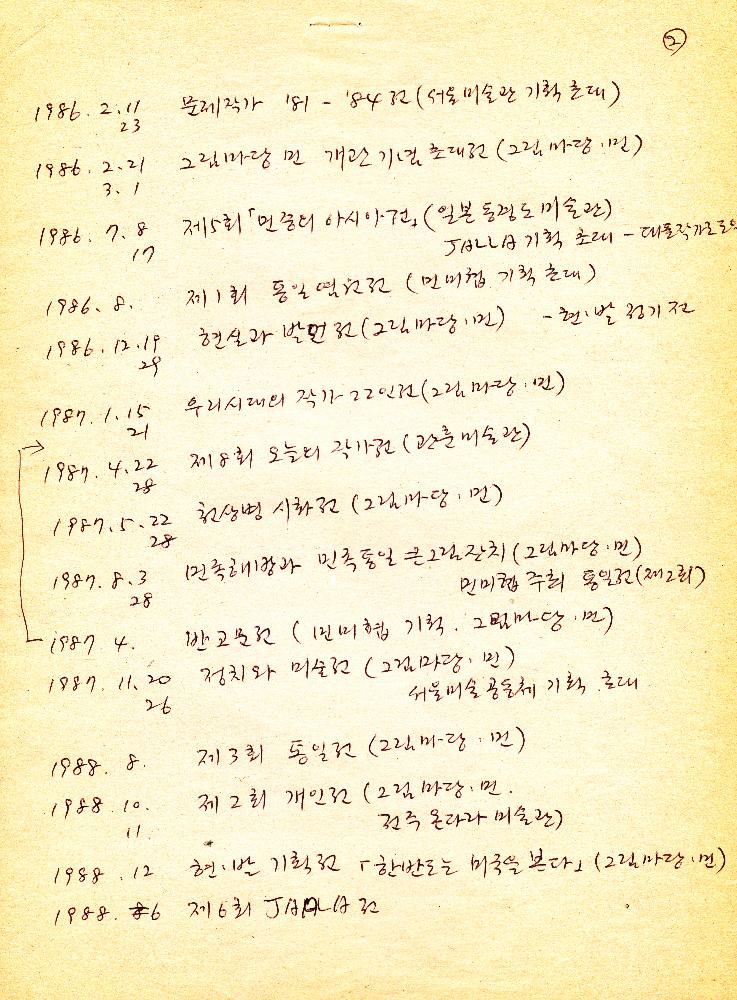 ②
1986. 2. 11 문제작가 '81 - '84전 (서울미술관 기획 초대)
23
1986. 2. 21 그림마당 민 개관기념 초대전 (그림마당·민)
3. 1
1986. 7. 8 제5회 「민중의 아시아전」 (일본 동경도 미술관)
17 JALLA 기획 초대 - 대표작가로
1986. 8. 제1회 통일염원전 (민미협 기획 초대)
1986. 12. 19 현실과 발언전 (그림마당·민) - 현·발 정기전
29
1987. 1. 15 우리시대의 작가 22인전 (그림마당·민)
21
1987. 4. 22 제8회 오늘의 작가전 (관훈미술관)
28
1987. 5. 22 천상병 시화전 (그림마당·민)
28
1987. 8. 3 민족해방과 민족통일 큰그림잔치 (그림마당·민)
28 민미협 주최 통일전 (제2회)
1987 4. 반고문전 (민미협 기획. 그림마당·민)
1987. 11. 20 정치와 미술전 (그림마당·민)
26 서울미술공동체 기획 초대
1988. 8. 제3회 통일전 (그림마당·민)
1988. 10. 제2회 개인전 (그림마당·민.
11. 전주 온다라 미술관)
1988. 12 현·발 기획전 「한반도는 미국을 본다」 (그림마당·민)
1988. 6 제6회 JALLA전